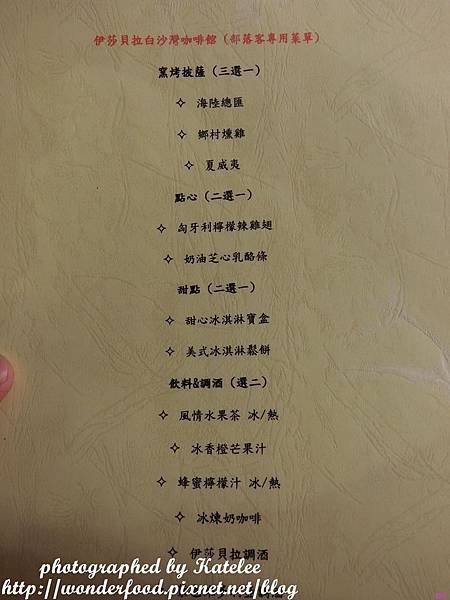 伊莎貝拉白沙灣咖啡館(部落客專用菜單)
窯烤披薩(三選一)
✧ 海陸總匯
✧ 鄉村燻雞
✧ 夏威夷
點心(二選一)
✧ 匈牙利檸檬辣雞翅
✧ 奶油芝心乳酪條
甜點(二選一)
✧ 甜心冰淇淋寶盒
✧ 美式冰淇淋鬆餅
飲料&調酒(選二)
✧ 風情水果茶 冰/熱
✧ 冰香橙芒果汁
✧ 蜂蜜檸檬汁 冰/熱
✧ 冰煉奶咖啡
✧ 伊莎貝拉調酒
photographed by Katelee
http://wonderfood.pixnet.net/blog